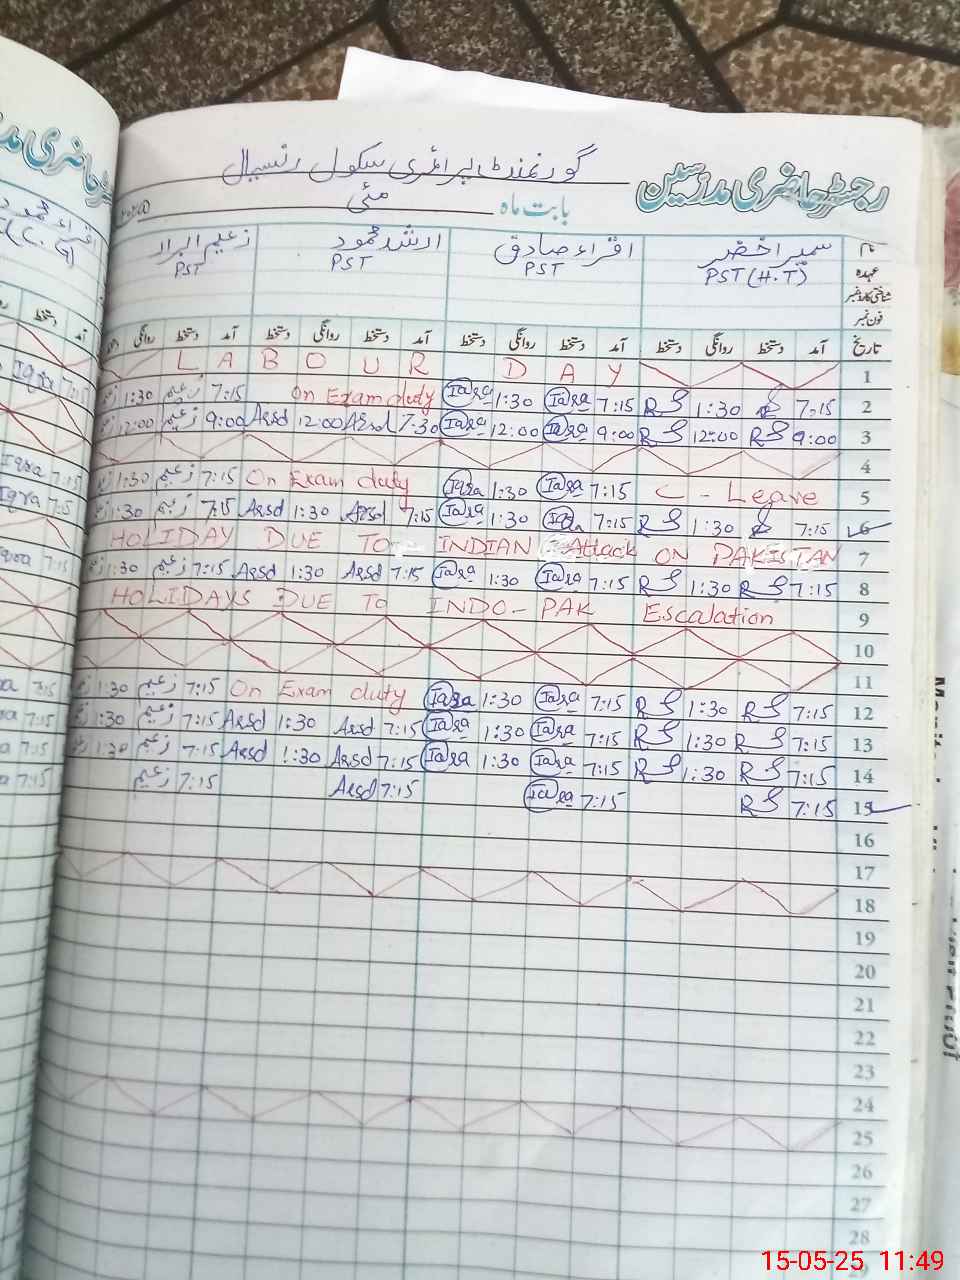 گورنمنٹ پرائمری سکول رنسیال
رجسٹر حاضری مدرسین
بابت ماہ مئی
نام سمیرا خضر اقراء صادق ارشد محمود زعیم البرار
عہدہ PST (H.T) PST PST PST
شناختی کارڈ نمبر
فون نمبر
تاریخ آمد دستخط روانگی دستخط آمد دستخط روانگی دستخط آمد دستخط روانگی دستخط آمد دستخط روانگی
LABOUR DAY 1
1:30 زعیم 7:15 On Exam duty Iqra 1:30 Iqra 7:15 RS 1:30 7:15 2
12:00 زعیم 9:00 Arsd 12:00 Arsd 7:30 Iqra 12:00 Iqra 9:00 RS 12:00 RS 9:00 3
4
1:30 زعیم 7:15 On Exam duty Iqra 1:30 Iqra 7:15 C - Leave 5
1:30 زعیم 7:15 Arsd 1:30 Arsd 7:15 Iqra 1:30 Iqra 7:15 RS 1:30 7:15 6
HOLIDAY DUE TO INDIAN Attack ON PAKISTAN 7
1:30 زعیم 7:15 Arsd 1:30 Arsd 7:15 Iqra 1:30 Iqra 7:15 RS 1:30 RS 7:15 8
HOLIDAYS DUE TO INDO-PAK Escalation 9
10
11
1:30 زعیم 7:15 On Exam duty Iqra 1:30 Iqra 7:15 RS 1:30 RS 7:15 12
1:30 زعیم 7:15 Arsd 1:30 Arsd 7:15 Iqra 1:30 Iqra 7:15 RS 1:30 RS 7:15 13
1:30 زعیم 7:15 Arsd 1:30 Arsd 7:15 Iqra 1:30 Iqra 7:15 RS 1:30 RS 7:15 14
زعیم 7:15 Arsd 7:15 Iqra 7:15 RS 7:15 15
16
17
18
19
20
21
22
23
24
25
26
27
28
15-05-25 11:49